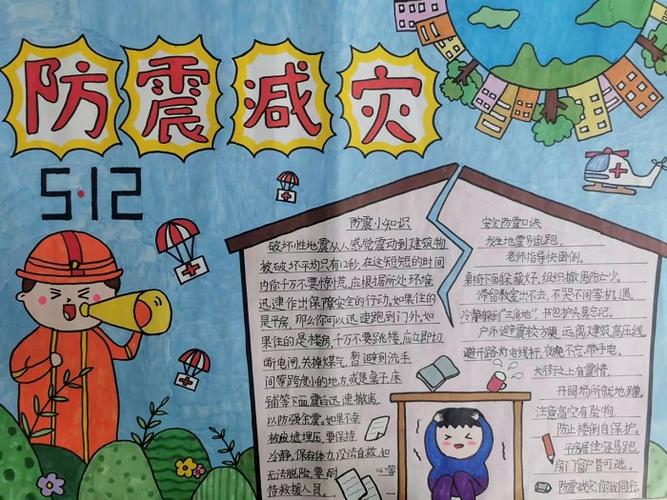 防震减灾
5·12
防震小知识
破坏性地震从人感觉震动到建筑物
被破坏平均只有12秒,在这短短的时间
内你千万不要惊慌,应根据所处环境
迅速作出保障安全的行动。如果住的
是平房,那么你可以迅速跑到门外。如
果住的是楼房,千万不要跳楼,应立即切
断电闸,关掉煤气,暂避到洗手
间等跨度小的地方,或是桌子,床
铺等下面,震后迅速撤离,
以防强余震。如果不幸
被废墟埋压,要保持
冷静,保存体力,没法自救,也
无法脱险,要耐心等
待救援人员。
安全防震口诀
发生地震别乱跑,
老师指导快卧倒。
桌椅下面躲藏好,组织撤离
滞留教室出不去,不哭不闹等机遇。
冷静躲到"三角地",书包护头莫忘记。
户外避震较方便,远离建筑高压线。
避开路灯电线杆,夜晚不忘带手电。
大街之上有震情,
开阔场所就地蹲。
注意高空有坠物,
防止楼倒自保护。
平房居住容易跑,
房门窗户皆可逃。
防震减灾你我同行